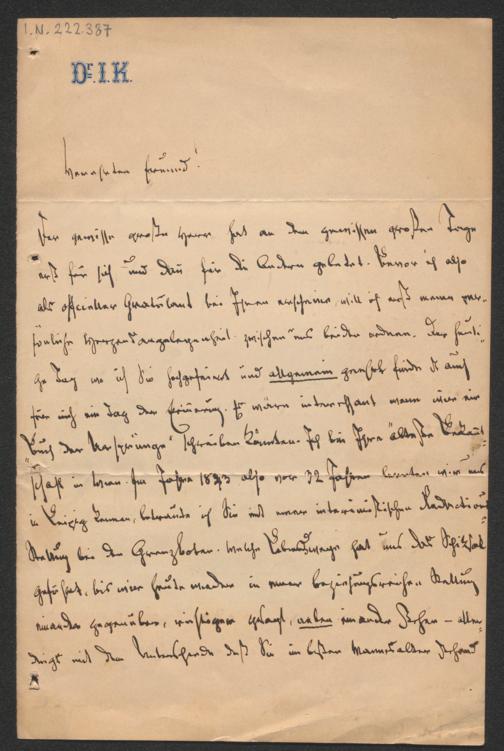 I.N. 222.387
Dr. I. K.
Verehrter Freund!
Der gewisse große Herr hat an dem gewissen großen Tage
erst für sich und dann für die Andern gebetet. Bevor ich also
als officieller Gratulant bei Ihnen erscheine, will ich erst meine per-
sönliche Herzensangelegenheit zwischen uns beiden ordnen. Der heuti-
ge Tag wo ich Sie hochgefeiert und allgemein geehrt finde ist auch
für mich ein Tag der Erinnerung. Es wäre interessant wenn wir ein
"Buch der Ursprünge" schreiben könnten. Ich bin Ihre älteste Bekannt-
schaft in Wien. Im Jahre 1843 also vor 32 Jahren lernten wir uns
in Leipzig kennen, betraute ich Sie mit einer interimistischen Redactions-
Stellung bei den Grenzboten. Welche Lebenswege hat uns das Schicksal
geführt, bis wir heute wieder in einer beziehungsreichen Stellung
einander gegenüber, richtiger gesagt, neben einander stehen – aller-
dings mit dem Unterschiede daß Sie im besten Mannesalter stehend